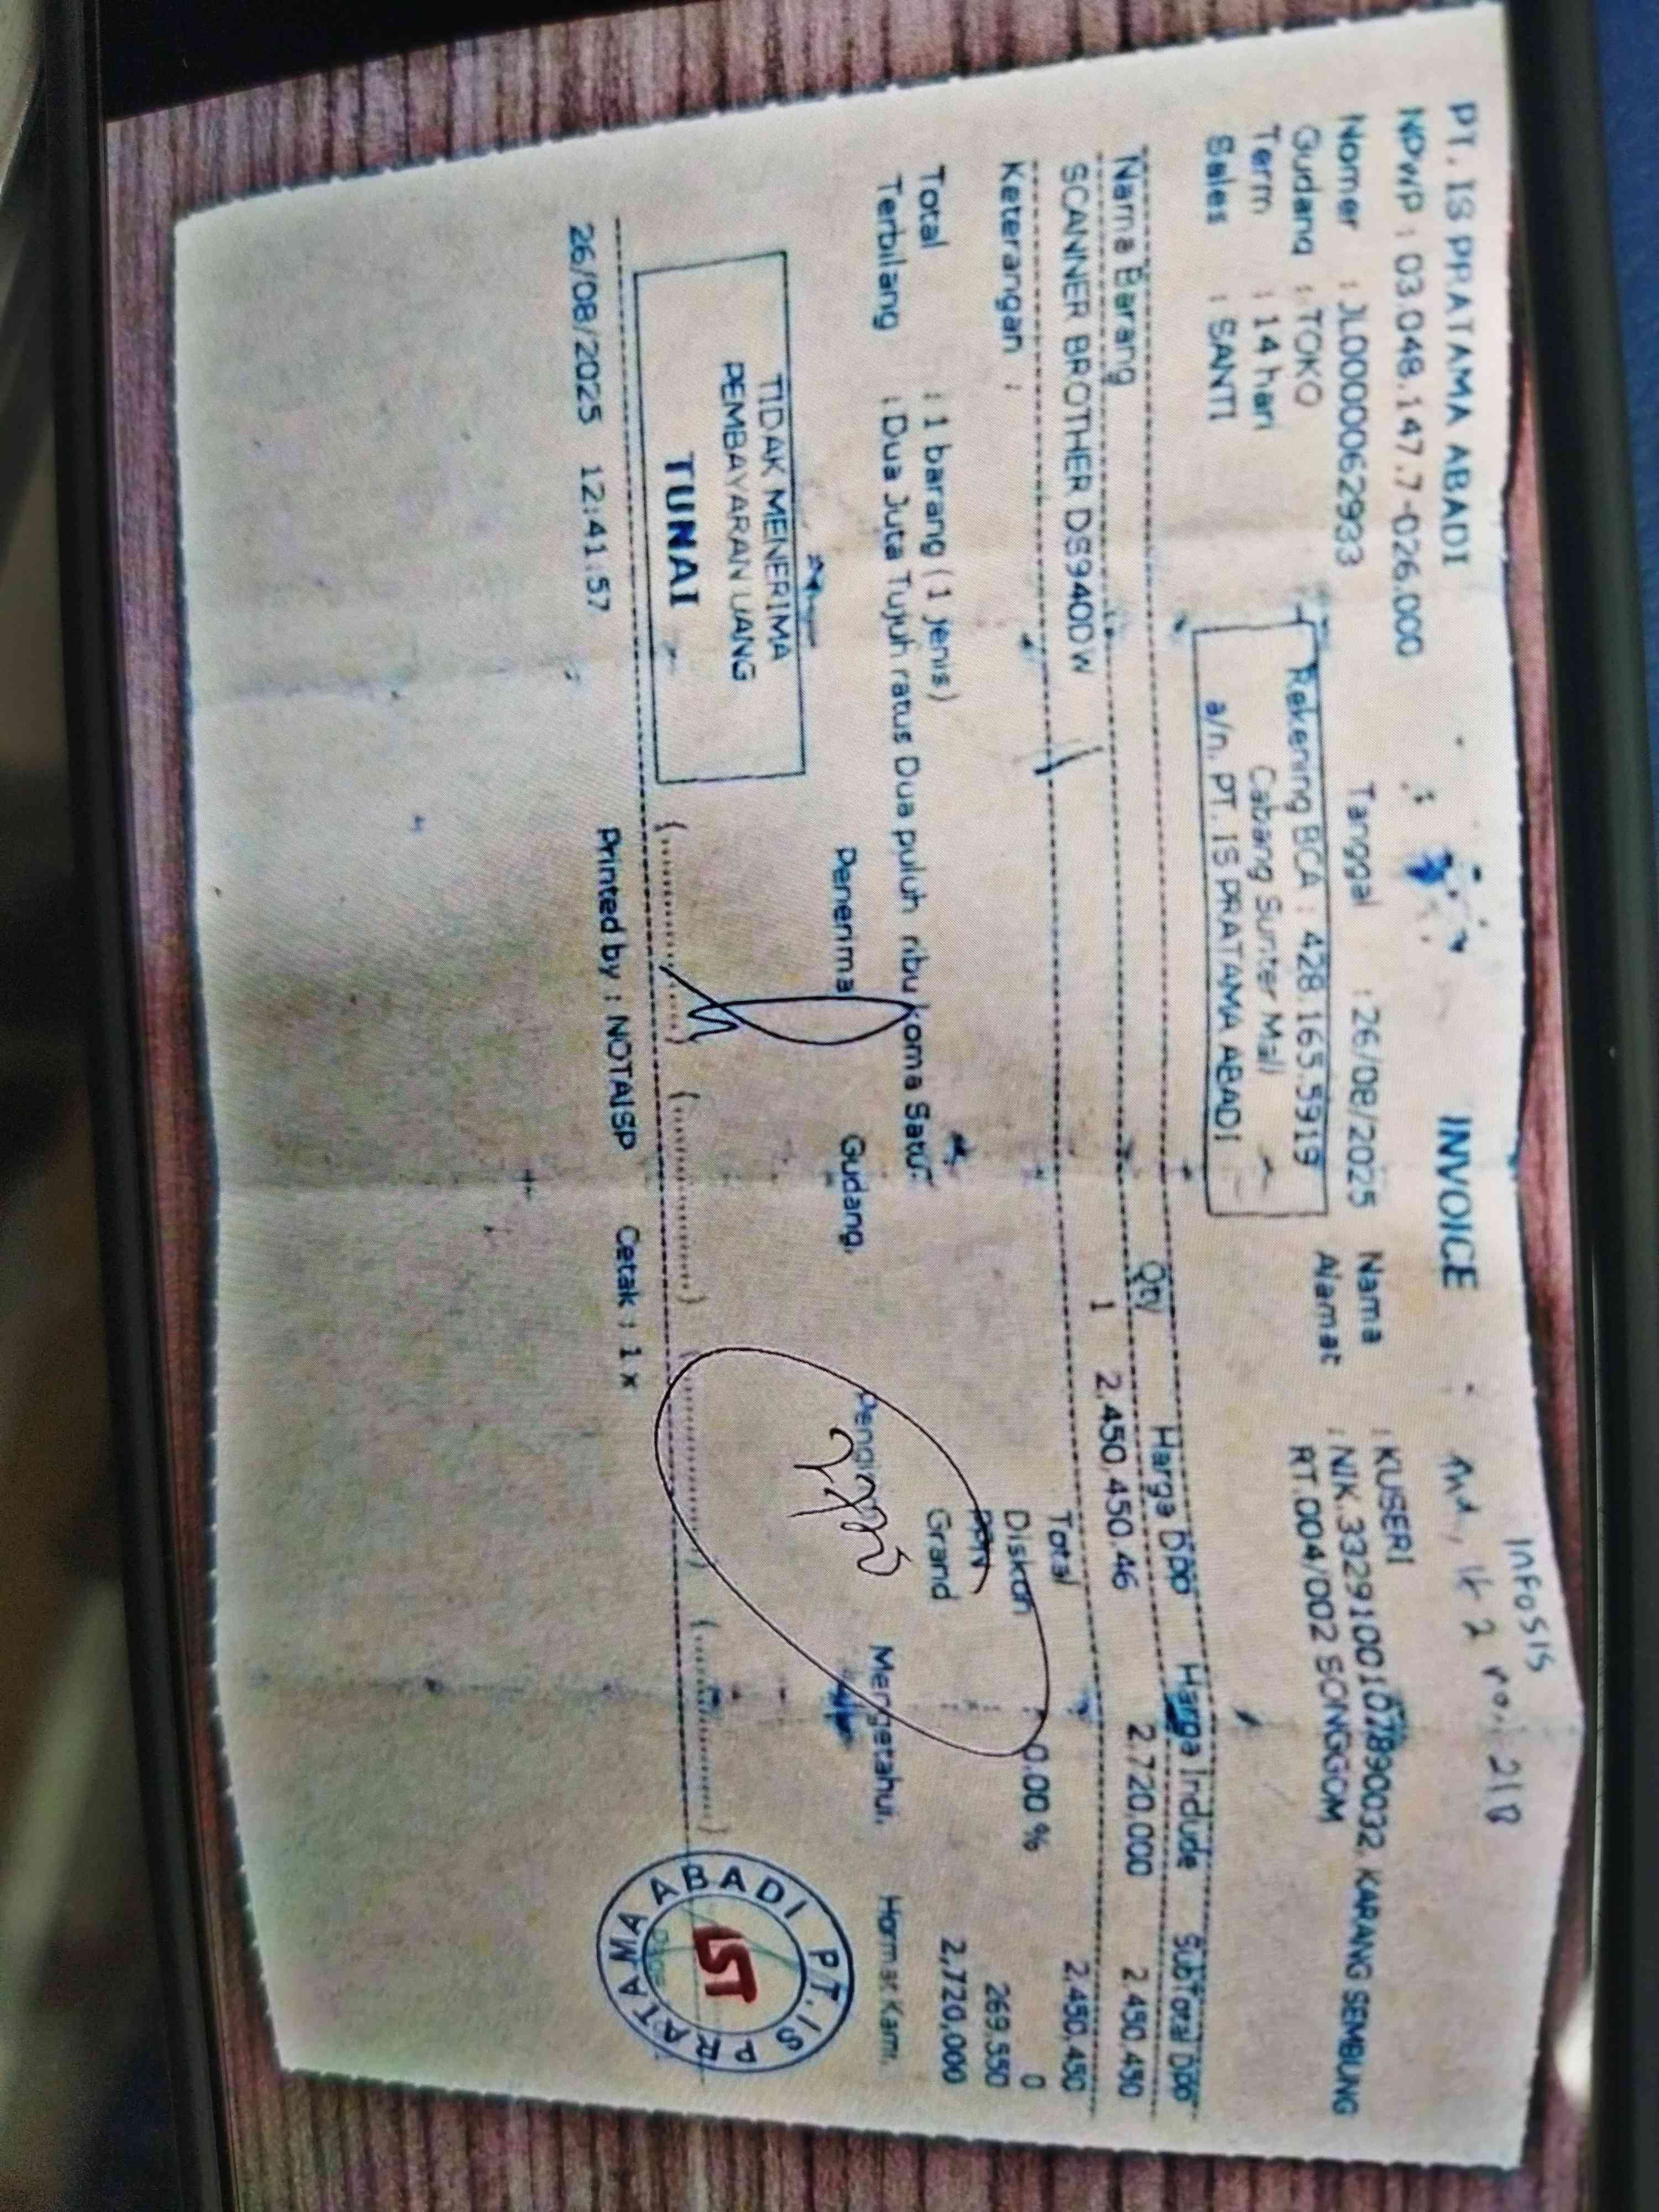 PT. IS PRATAMA ABADI
INVOICE
INFOSIS
NPWP : 03.048.147.7-026.000
lt 2 no. 218
Nomer : JL0000062933
Tanggal : 26/08/2025
Nama : KUSERI
Gudang : TOKO
Alamat : NIK.3329100107890032, KARANG SEMBUNG
RT.004/002 SONGGOM
Term : 14 hari
Sales : SANTI
Rekening BCA : 428.165.5919
Cabang Sunter Mall
a/n. PT. IS PRATAMA ABADI
Nama Barang Qty Harga Dpp Harga Include SubTotal Dpp
SCANNER BROTHER DS940DW 1 2.450.450.46 2.720.000 2.450.450
Keterangan :
Total 2.450.450
Diskon : 0.00 % 0
PPN 269.550
Grand 2.720.000
Total : 1 barang (1 jenis)
Terbilang : Dua Juta Tujuh ratus Dua puluh ribu koma Satu
Penerima Gudang, Mengetahui, Hormat Kami,
TIDAK MENERIMA
PEMBAYARAN UANG
TUNAI
PT. IS PRATAMA ABADI
IST
26/08/2025 12:41:57 Printed by : NOTAISP Cetak : 1 x